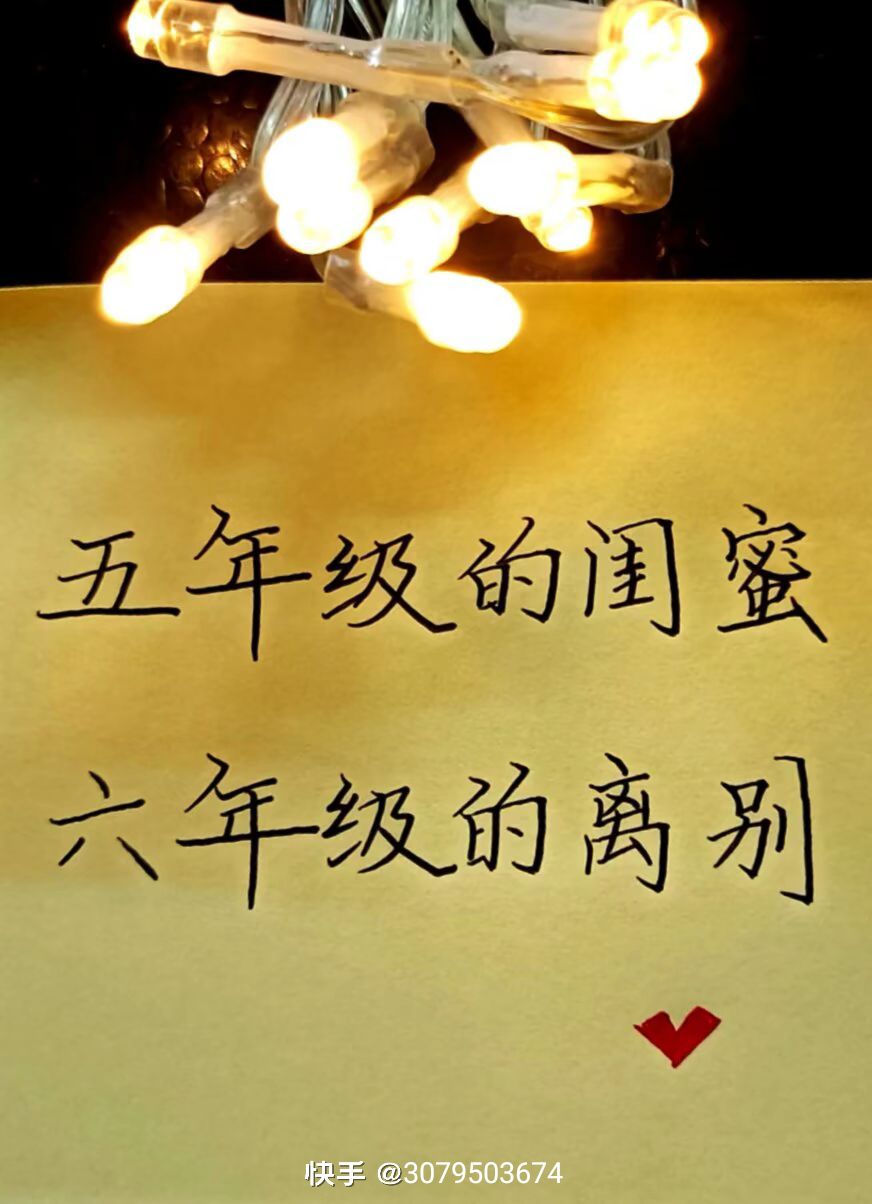 五年级的闺蜜
六年级的离别
快手 @3079503674